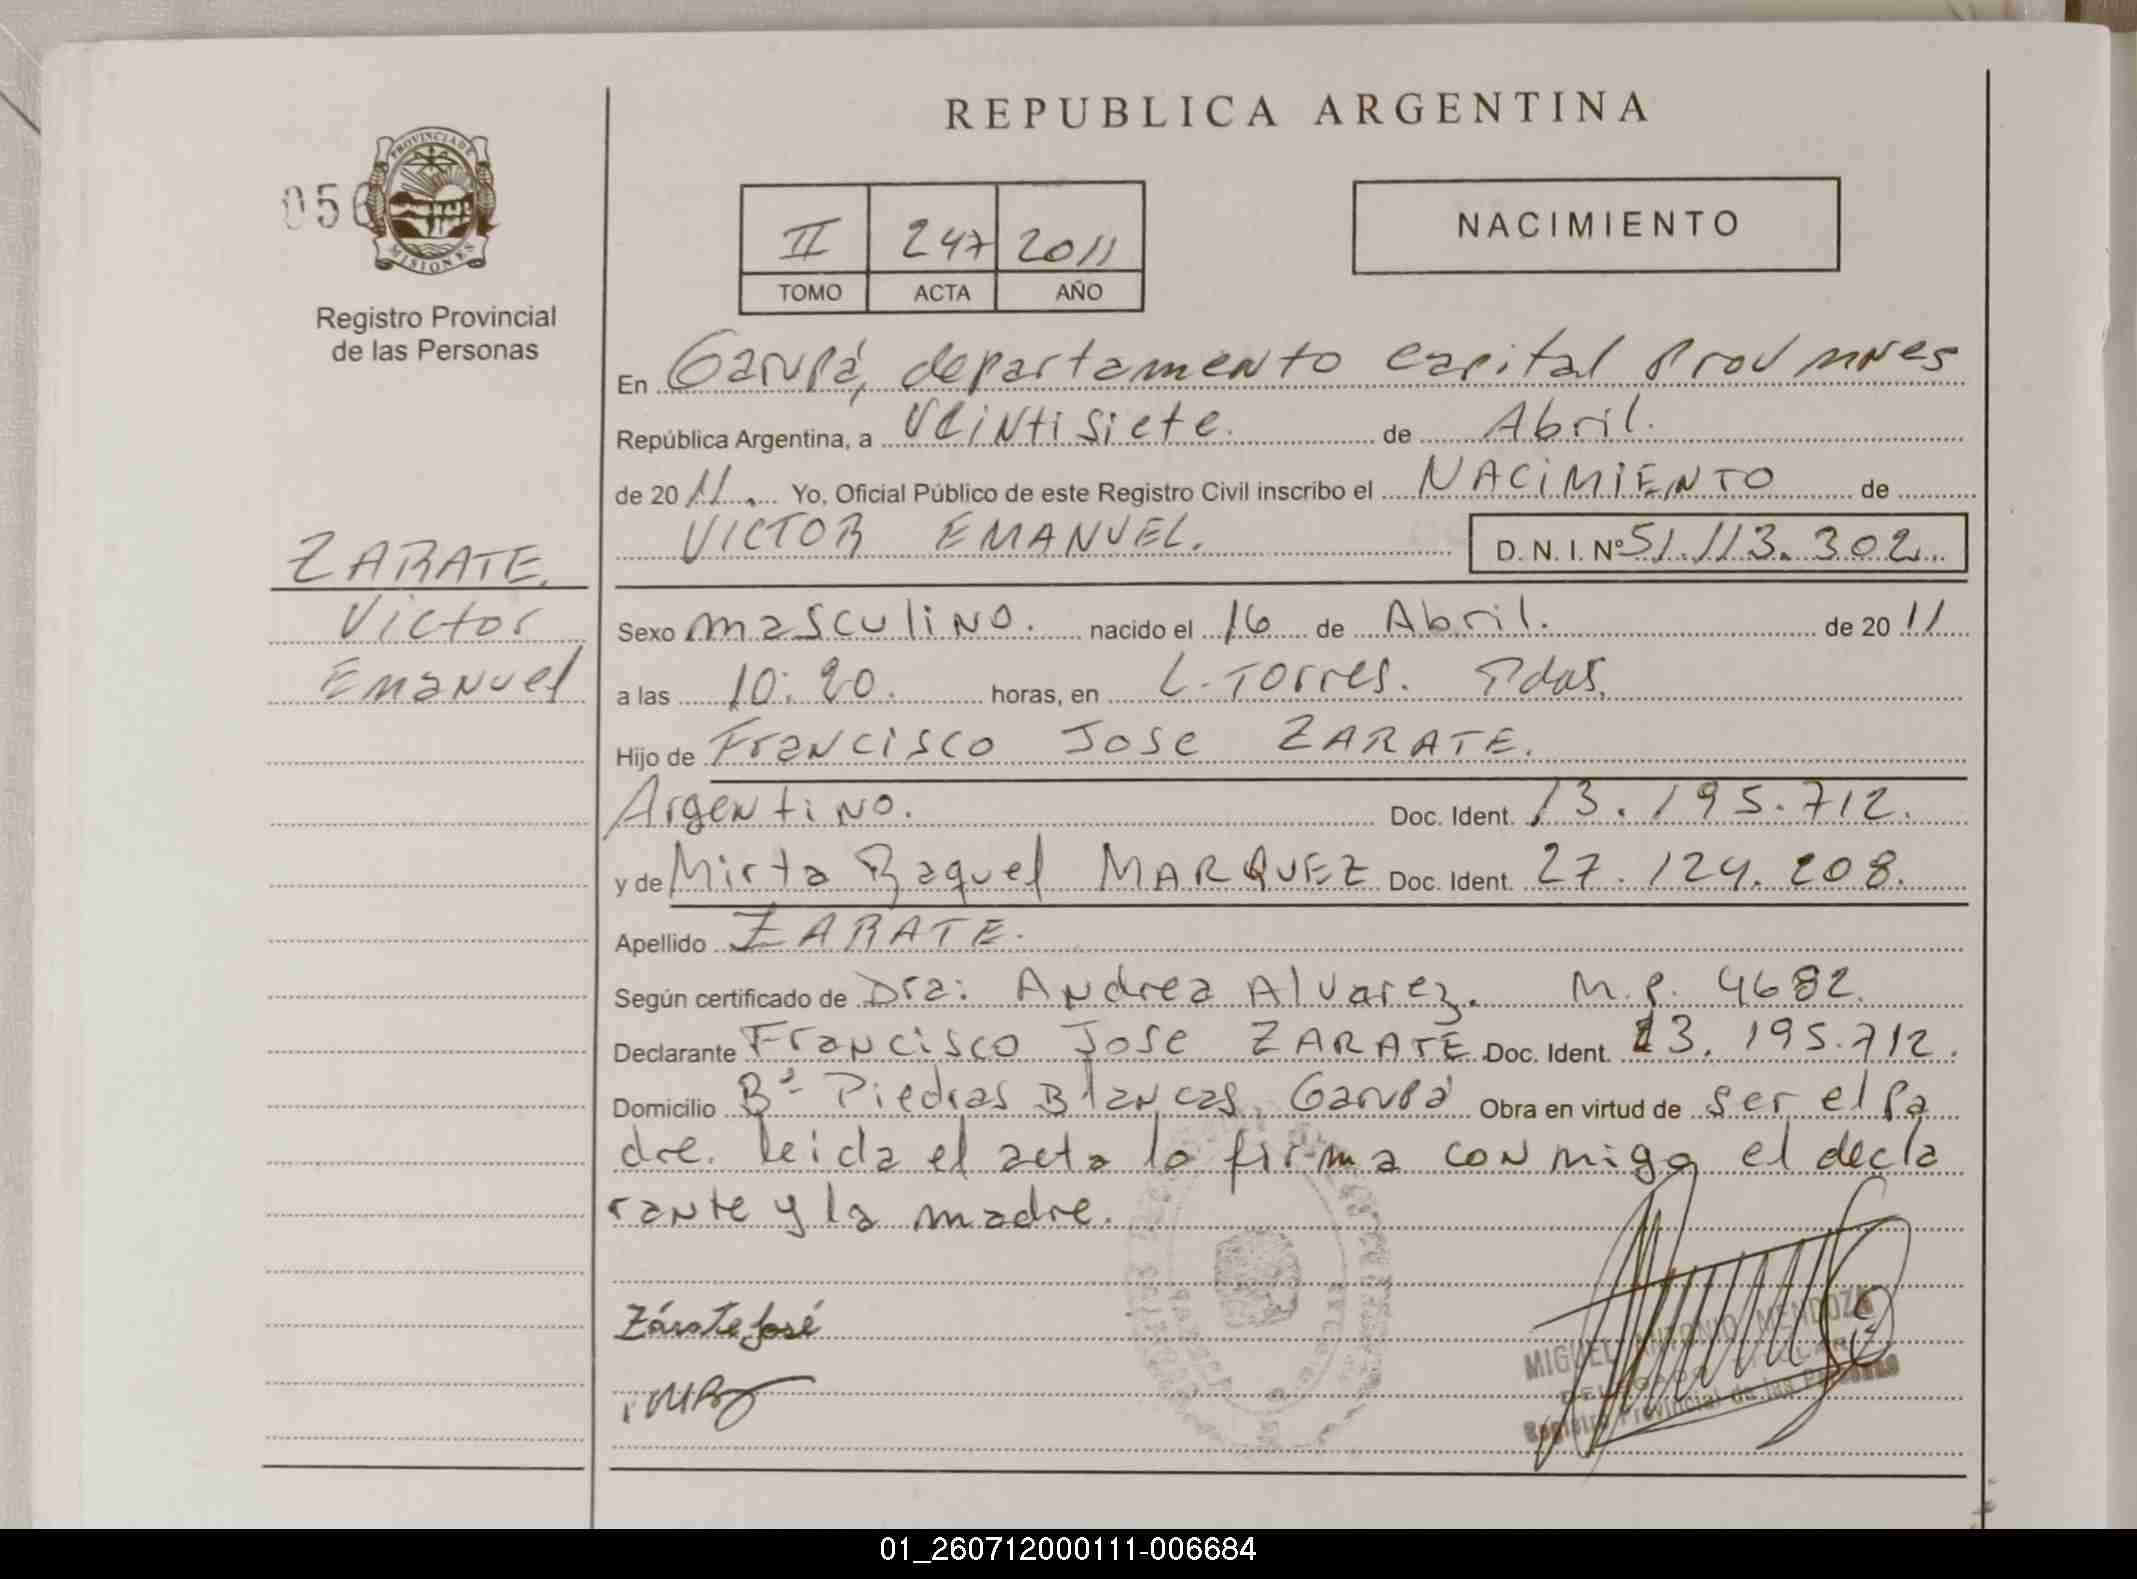 REPUBLICA ARGENTINA
056
PROVINCIA DE
MISIONES
Registro Provincial
de las Personas
II 247 2011
TOMO ACTA AÑO
NACIMIENTO
En Garupá, departamento Capital Prov mnes
República Argentina, a veintisiete. de Abril.
de 20 11. Yo, Oficial Público de este Registro Civil inscribo el NACIMIENTO de
VICTOR EMANUEL. D. N. I. Nº 51.113.302
ZARATE.
Victor
Emanuel
Sexo masculino. nacido el 16 de Abril. de 20 11
a las 10:20. horas, en L. Torres. Pdas.
Hijo de Francisco Jose ZARATE.
Argentino. Doc. Ident. 13.195.712.
y de Mirta Raquel MARQUEZ Doc. Ident. 27.124.208.
Apellido ZARATE.
Según certificado de Dra: Andrea Alvarez. M.P. 4682.
Declarante Francisco Jose ZARATE Doc. Ident. 13.195.712.
Domicilio Bº Piedras Blancas, Garupá Obra en virtud de ser el pa
dre. leida el acta la firma conmigo el decla
rante y la madre.
Zárate José
MIGUEL ANTONIO MENDOZA
DELEGADO TITULAR
Registro Provincial de las Personas
01_260712000111-006684